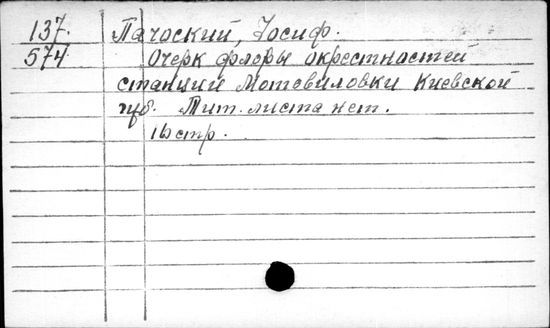 137. Пачоский, Іосиф.
574 Очерк флоры окрестностей
станции Мотовиловки Киевской
губ. Тит. листа нет.
16 стр.